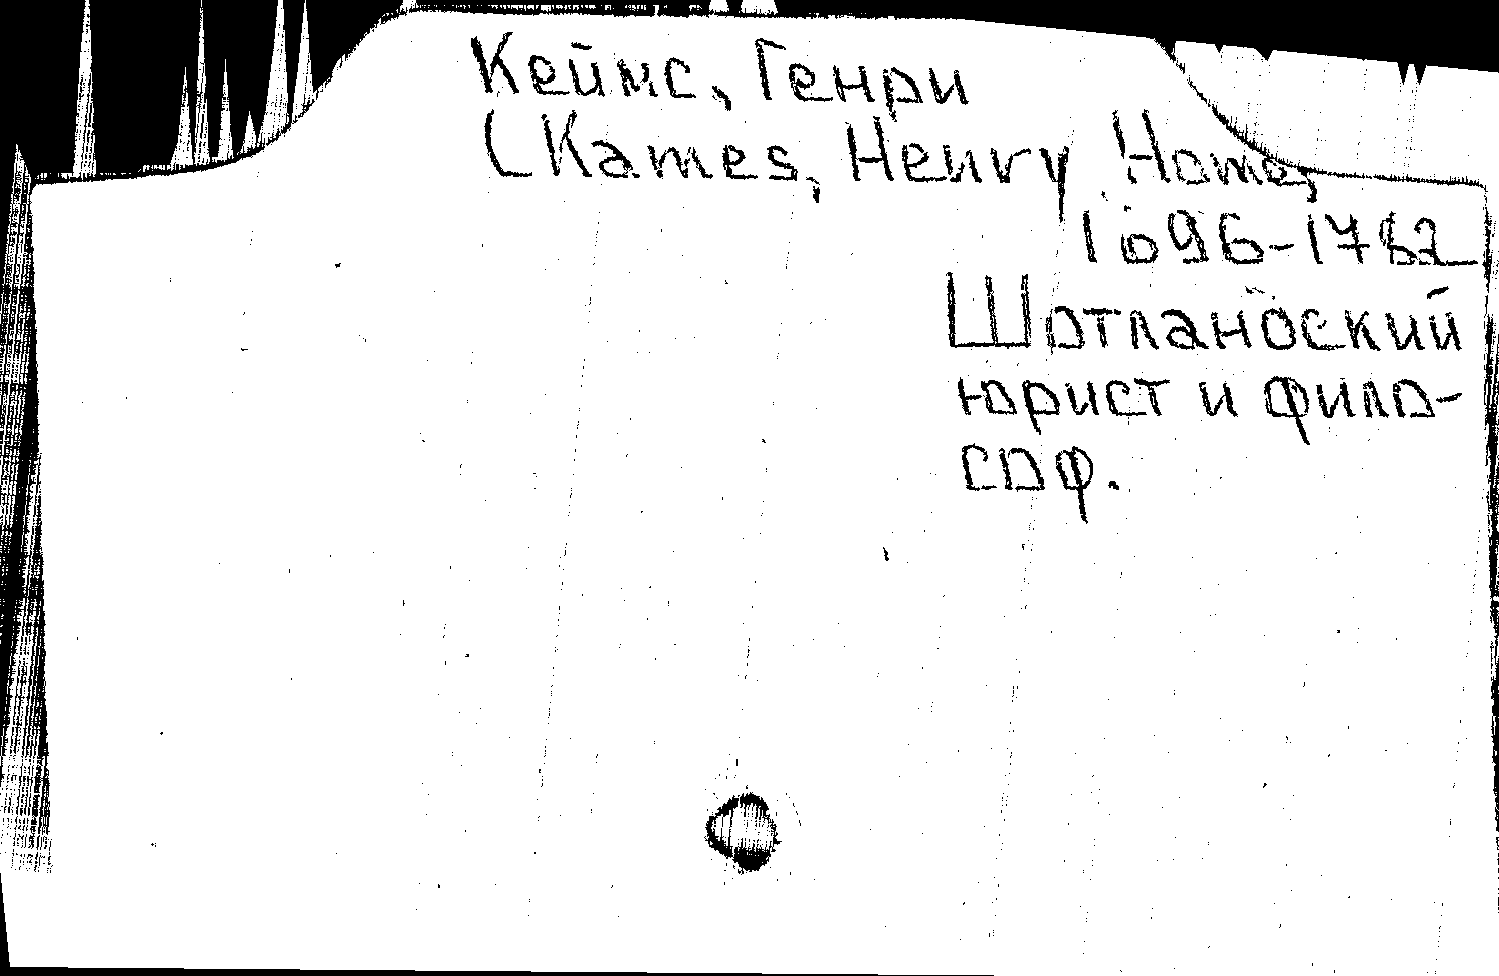 Кеймс, Генри
(Kames, Henry Home,
1696-1782
Шотландский
юрист и фило-
соф.